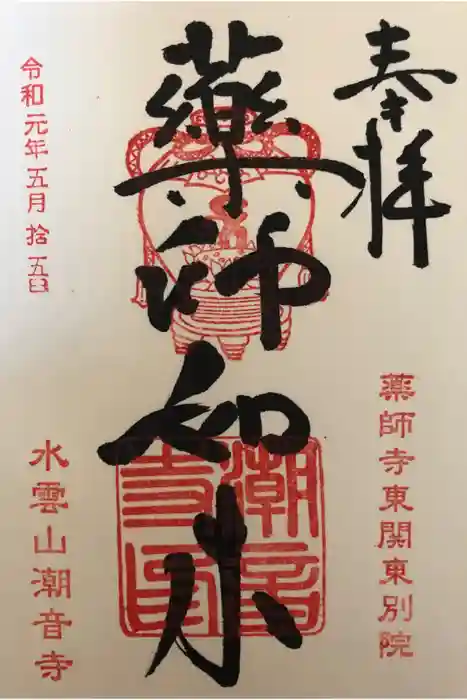 奉拝
薬師寺東関東別院
薬師如来
潮音寺印
令和元年五月拾五日
水雲山潮音寺